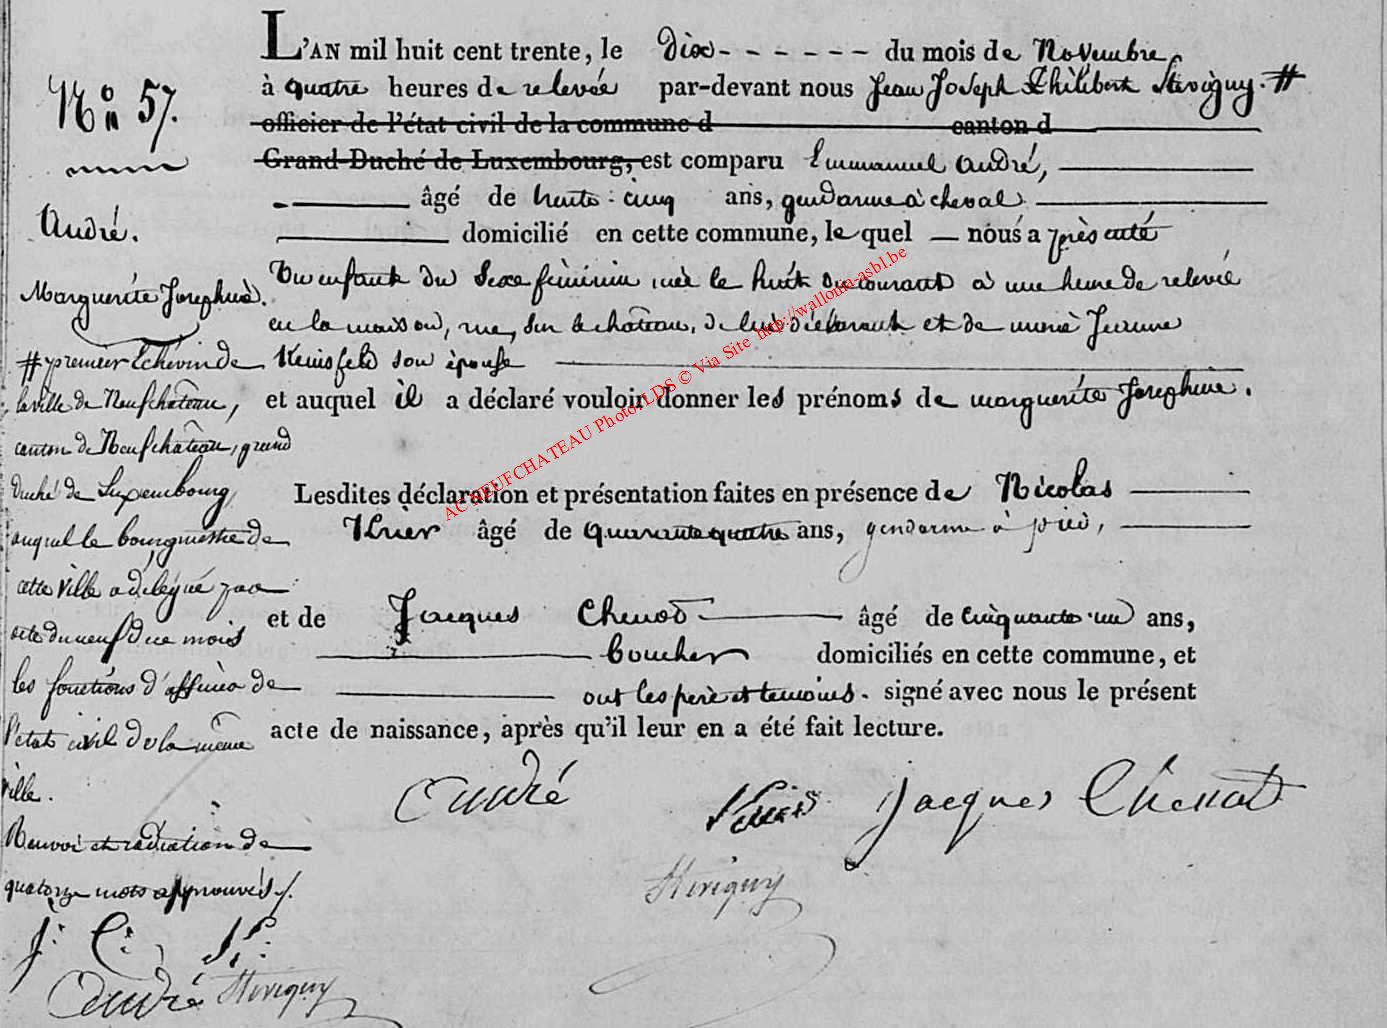 L'AN mil huit cent trente, le dix - - - - - - du mois de Novembre
à quatre heures de relevée par-devant nous Jean Joseph Philibert Stevigny. #
officier de l'état civil de la commune d canton d
Grand-Duché de Luxembourg, est comparu Emmanuel André,
âgé de trente-cinq ans, gendarme à cheval
domicilié en cette commune, le quel nous a présenté
Un enfant du Sexe féminin née le huit du courant à une heure de relevée
en la maison, rue, Sur le château, de lui déclarant et de Jeanne
son épouse
et auquel il a déclaré vouloir donner les prénoms de marguerite Josephine.
Lesdites déclaration et présentation faites en présence de Nicolas
âgé de quarante quatre ans, gendarme à pied,
et de Jacques Chenot âgé de cinquante-un ans,
boucher domiciliés en cette commune, et
ont les père et temoins signé avec nous le présent
acte de naissance, après qu'il leur en a été fait lecture.
André
Jacques Chenot
Stevigny
No 57.
André.
Marguerite Josephine.
# premier Echevin de
la ville de Neufchâteau,
canton de Neufchâteau, grand
duché de Luxembourg,
auquel le bourgmestre de
cette ville a délégué par
acte du neuf de ce mois
les fonctions d'officier de
l'état civil de la même
ville.
Renvoi et radiation de
quatorze mots approuvés /.
J. C. N.
André Stevigny
AC NEUFCHATEAU Photo LDS © Via Site http://wallonia-asbl.be